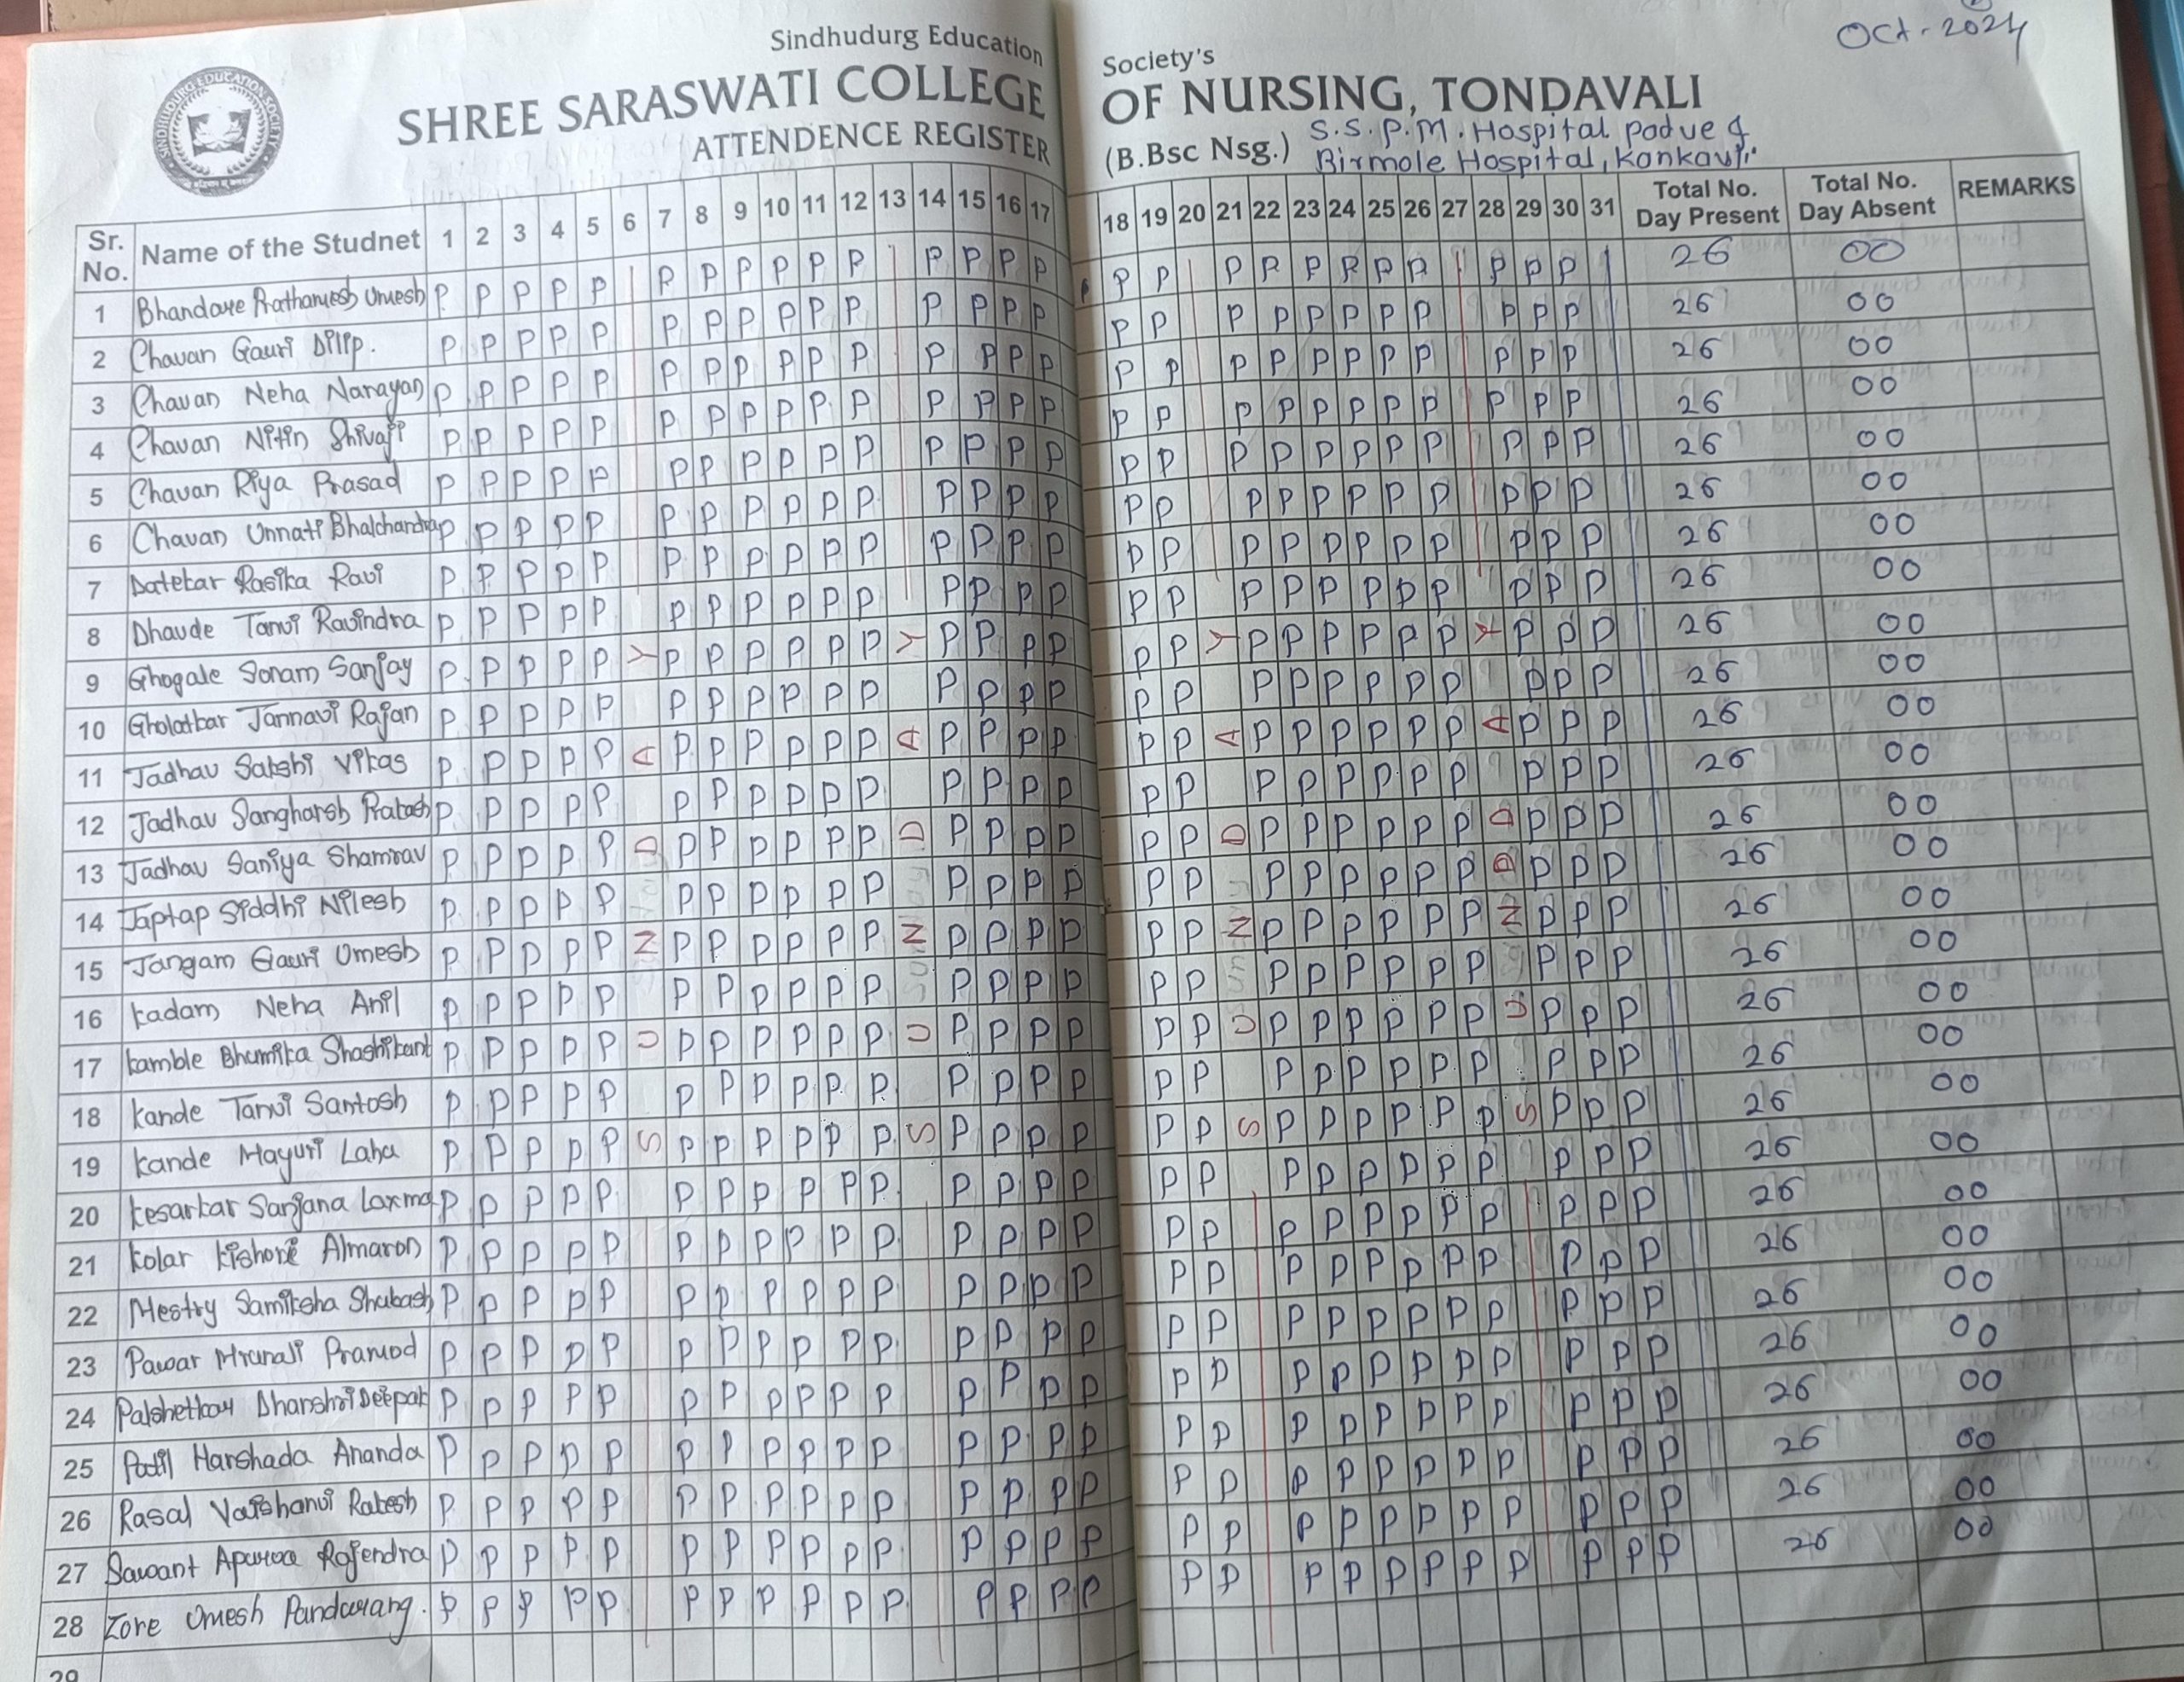 Sindhudurg Education Society's
Oct - 2024
SHREE SARASWATI COLLEGE OF NURSING, TONDAVALI
ATTENDENCE REGISTER (B.Bsc Nsg.) S.S.P.M. Hospital Padve &
Birmole Hospital, Kankavli.
Sr. No. Name of the Studnet 1 2 3 4 5 6 7 8 9 10 11 12 13 14 15 16 17 18 19 20 21 22 23 24 25 26 27 28 29 30 31 Total No. Day Present Total No. Day Absent REMARKS
1 Bhandare Prathamesh Umesh P P P P P P P P P P P P P P P P P P P P P P P P P P 26 00
2 Chavan Gauri Dilip. P P P P P P P P P P P P P P P P P P P P P P P P P P 26 00
3 Chavan Neha Narayan P P P P P P P P P P P P P P P P P P P P P P P P P P 26 00
4 Chavan Nitin Shivaji P P P P P P P P P P P P P P P P P P P P P P P P P P 26 00
5 Chavan Riya Prasad P P P P P P P P P P P P P P P P P P P P P P P P P P 26 00
6 Chavan Unnati Bhalchandra P P P P P P P P P P P P P P P P P P P P P P P P P P 26 00
7 Datekar Rasika Ravi P P P P P P P P P P P P P P P P P P P P P P P P P P 26 00
8 Dhavde Tanvi Ravindra P P P P P P P P P P P P P P P P P P P P P P P P P P 26 00
9 Ghogale Sonam Sanjay P P P P P Y P P P P P P Y P P P P P P Y P P P P P P Y P P P 26 00
10 Gholatkar Jannavi Rajan P P P P P P P P P P P P P P P P P P P P P P P P P P 26 00
11 Jadhav Sakshi Vikas P P P P P A P P P P P P A P P P P P P A P P P P P P A P P P 26 00
12 Jadhav Sangharsh Prakash P P P P P P P P P P P P P P P P P P P P P P P P P P 26 00
13 Jadhav Saniya Shamrav P P P P P D P P P P P P D P P P P P P D P P P P P P D P P P 26 00
14 Japtap Siddhi Nilesh P P P P P P P P P P P P P P P P P P P P P P P P D P P P 26 00
15 Jangam Gauri Umesh P P P P P N P P P P P P N P P P P P P N P P P P P P N P P P 26 00
16 Kadam Neha Anil P P P P P P P P P P P P P P P P P P P P P P P P P P 26 00
17 Kamble Bhumika Shashikant P P P P P U P P P P P P U P P P P P P U P P P P P P U P P P 26 00
18 Kande Tanvi Santosh P P P P P P P P P P P P P P P P P P P P P P P P P P 26 00
19 Kande Mayuri Lahu P P P P P S P P P P P P S P P P P P P S P P P P P P S P P P 26 00
20 Kesarkar Sanjana Laxma P P P P P P P P P P P P P P P P P P P P P P P P P P 26 00
21 Kolar Kishore Almaron P P P P P P P P P P P P P P P P P P P P P P P P P P 26 00
22 Mestry Samiksha Shubash P P P P P P P P P P P P P P P P P P P P P P P P P P 26 00
23 Pawar Mrunali Pramod P P P P P P P P P P P P P P P P P P P P P P P P P P 26 00
24 Palshetkar Dhanshri Deepak P P P P P P P P P P P P P P P P P P P P P P P P P P 26 00
25 Patil Harshada Ananda P P P P P P P P P P P P P P P P P P P P P P P P P P 26 00
26 Rasal Vaishanvi Rakesh P P P P P P P P P P P P P P P P P P P P P P P P P P 26 00
27 Sawant Apurva Rajendra P P P P P P P P P P P P P P P P P P P P P P P P P P 26 00
28 Zore Umesh Pandurang. P P P P P P P P P P P P P P P P P P P P P P P P P P 26 00
29